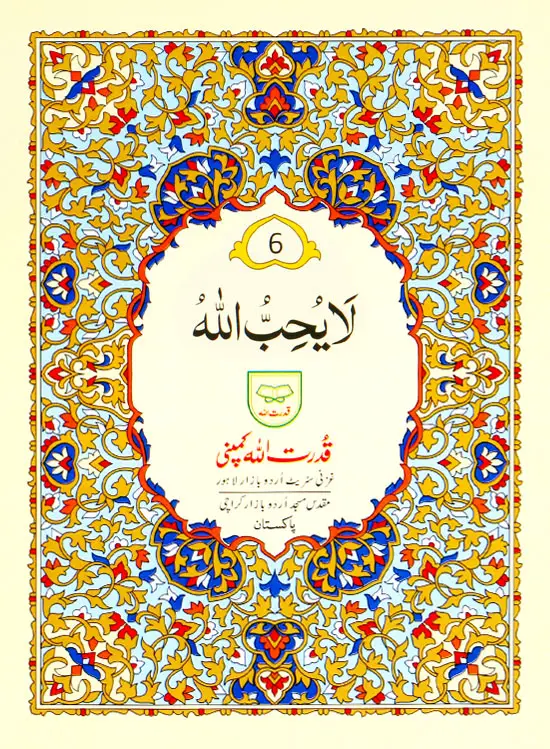 6
لَا يُحِبُّ اللّٰهُ
قدرت اللہ
قُدرت اللہ کمپنی
غزنی سٹریٹ اُردو بازار لاہور
مقدس مسجد اُردو بازار کراچی
پاکستان